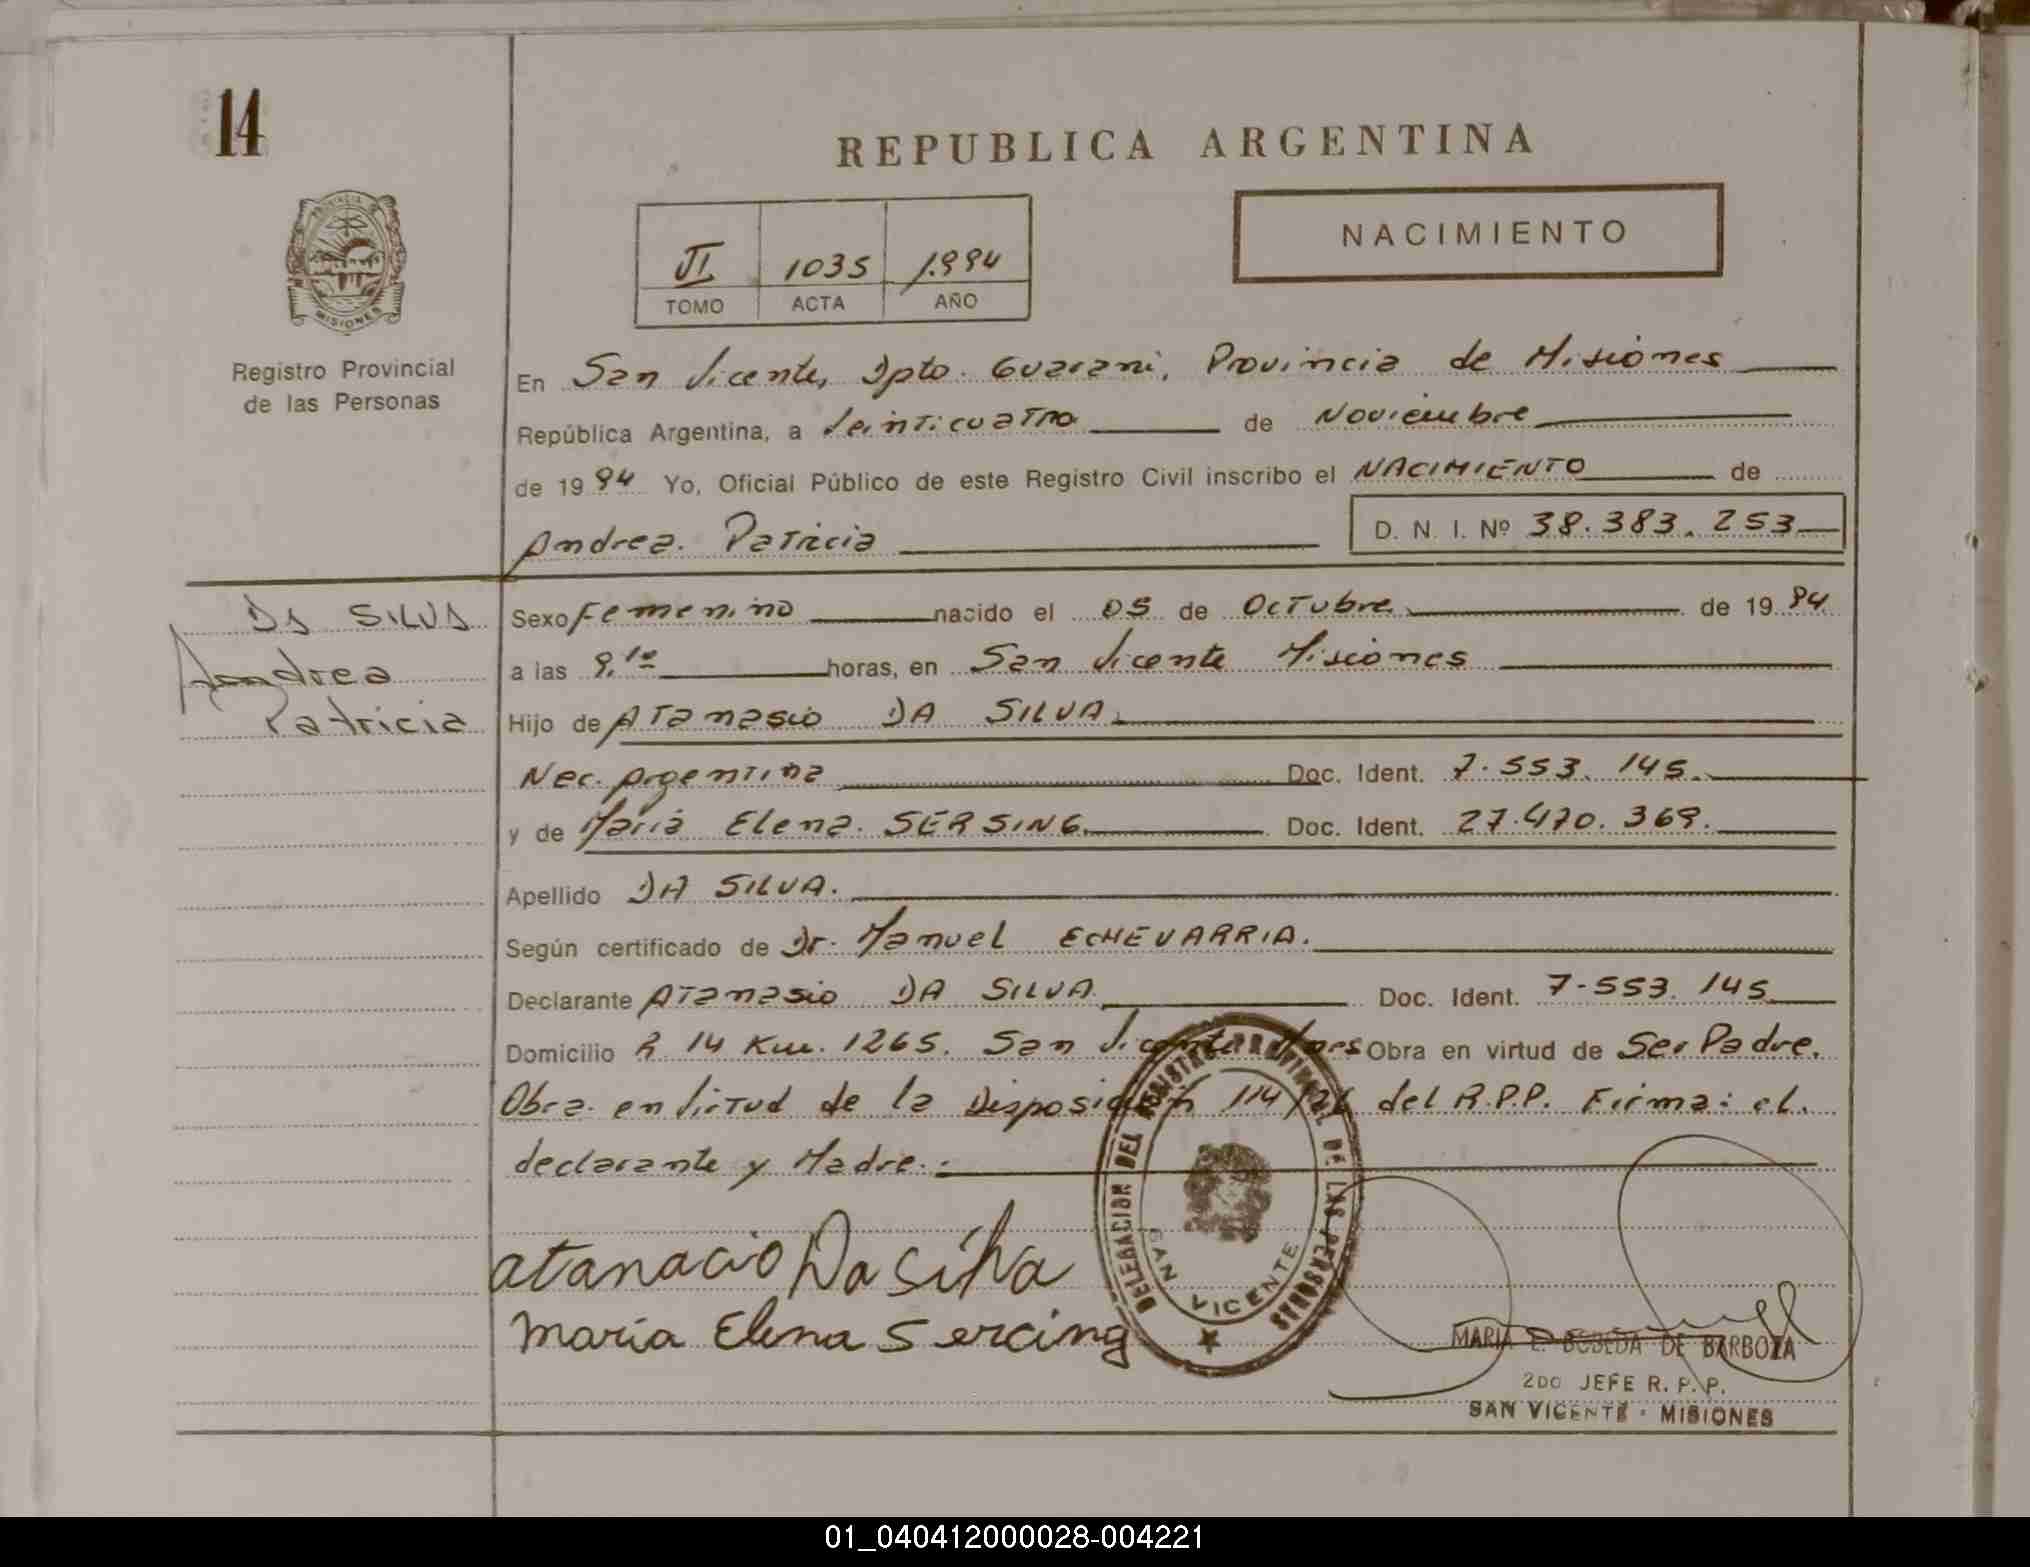 14
REPUBLICA ARGENTINA
NACIMIENTO
VI 1035 1.994
TOMO ACTA AÑO
PROVINCIA DE MISIONES
Registro Provincial
de las Personas
En San Vicente, Dpto. Guarani, Provincia de Misiones
República Argentina, a Veinticuatro de Noviembre
de 1994 Yo, Oficial Público de este Registro Civil inscribo el NACIMIENTO de
Andrea. Patricia D. N. I. Nº 38.383.253
DA SILVA
Andrea
Patricia
Sexo Femenino nacido el 05 de Octubre de 1994
a las 9,10 horas, en San Vicente Misiones
Hijo de Atanasio DA SILVA.
Nac. Argentina Doc. Ident. 7.553.145.
y de Maria Elena. SERSING Doc. Ident. 27.470.369.
Apellido DA SILVA.
Según certificado de Dr. Manuel ECHEVARRIA.
Declarante Atanasio DA SILVA Doc. Ident. 7.553.145
Domicilio R 14 Km. 1265. San Vicente Mnes Obra en virtud de Ser Padre.
Obra en Virtud de la Disposición 114/ del R.P.P. Firma: el.
declarante y Madre.
DELEGACION DEL REGISTRO PROVINCIAL DE LAS PERSONAS
SAN VICENTE
atanacio Da silva
maria Elena Sercing
MARIA E. DE BARBOZA
2DO JEFE R. P. P.
SAN VICENTE - MISIONES
01_040412000028-004221